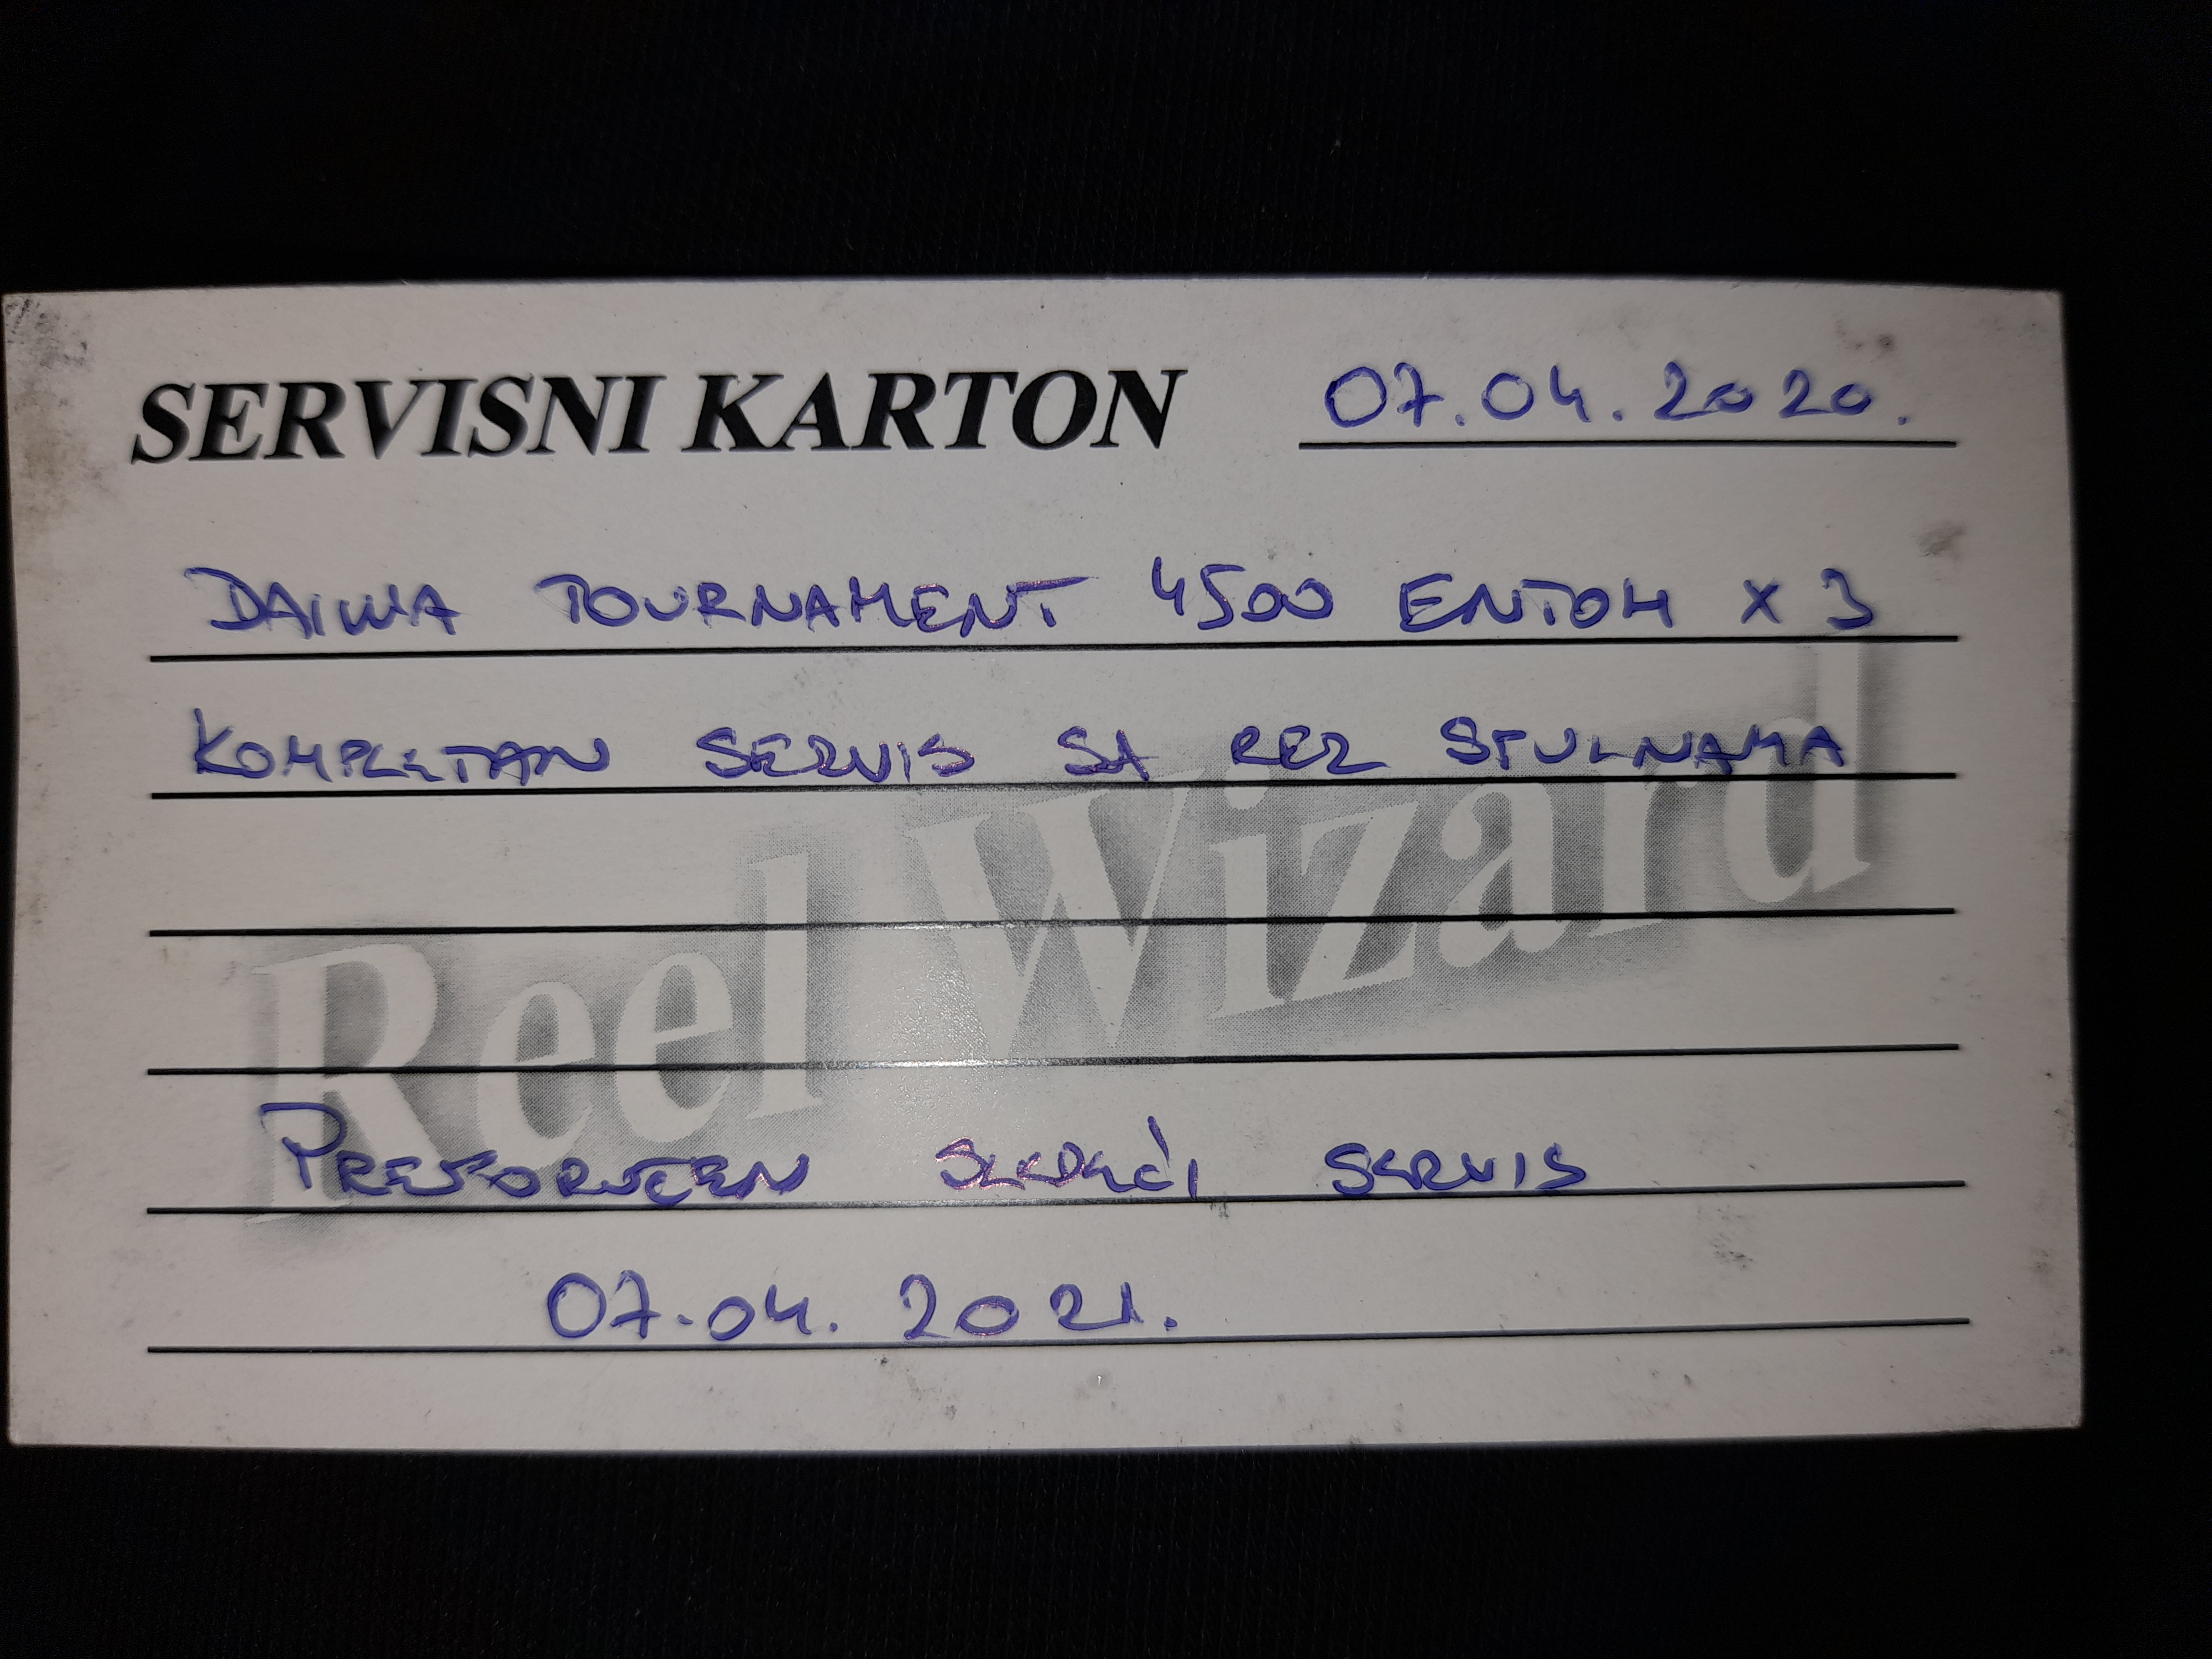 SERVISNI KARTON 07.04.2020.
DAIWA TOURNAMENT 4500 ENTOH X 3
KOMPLETAN SERVIS SA REZ ŠPULNAMA
Reel Wizard
PREPORUČEN SLEDEĆI SERVIS
07.04.2021.